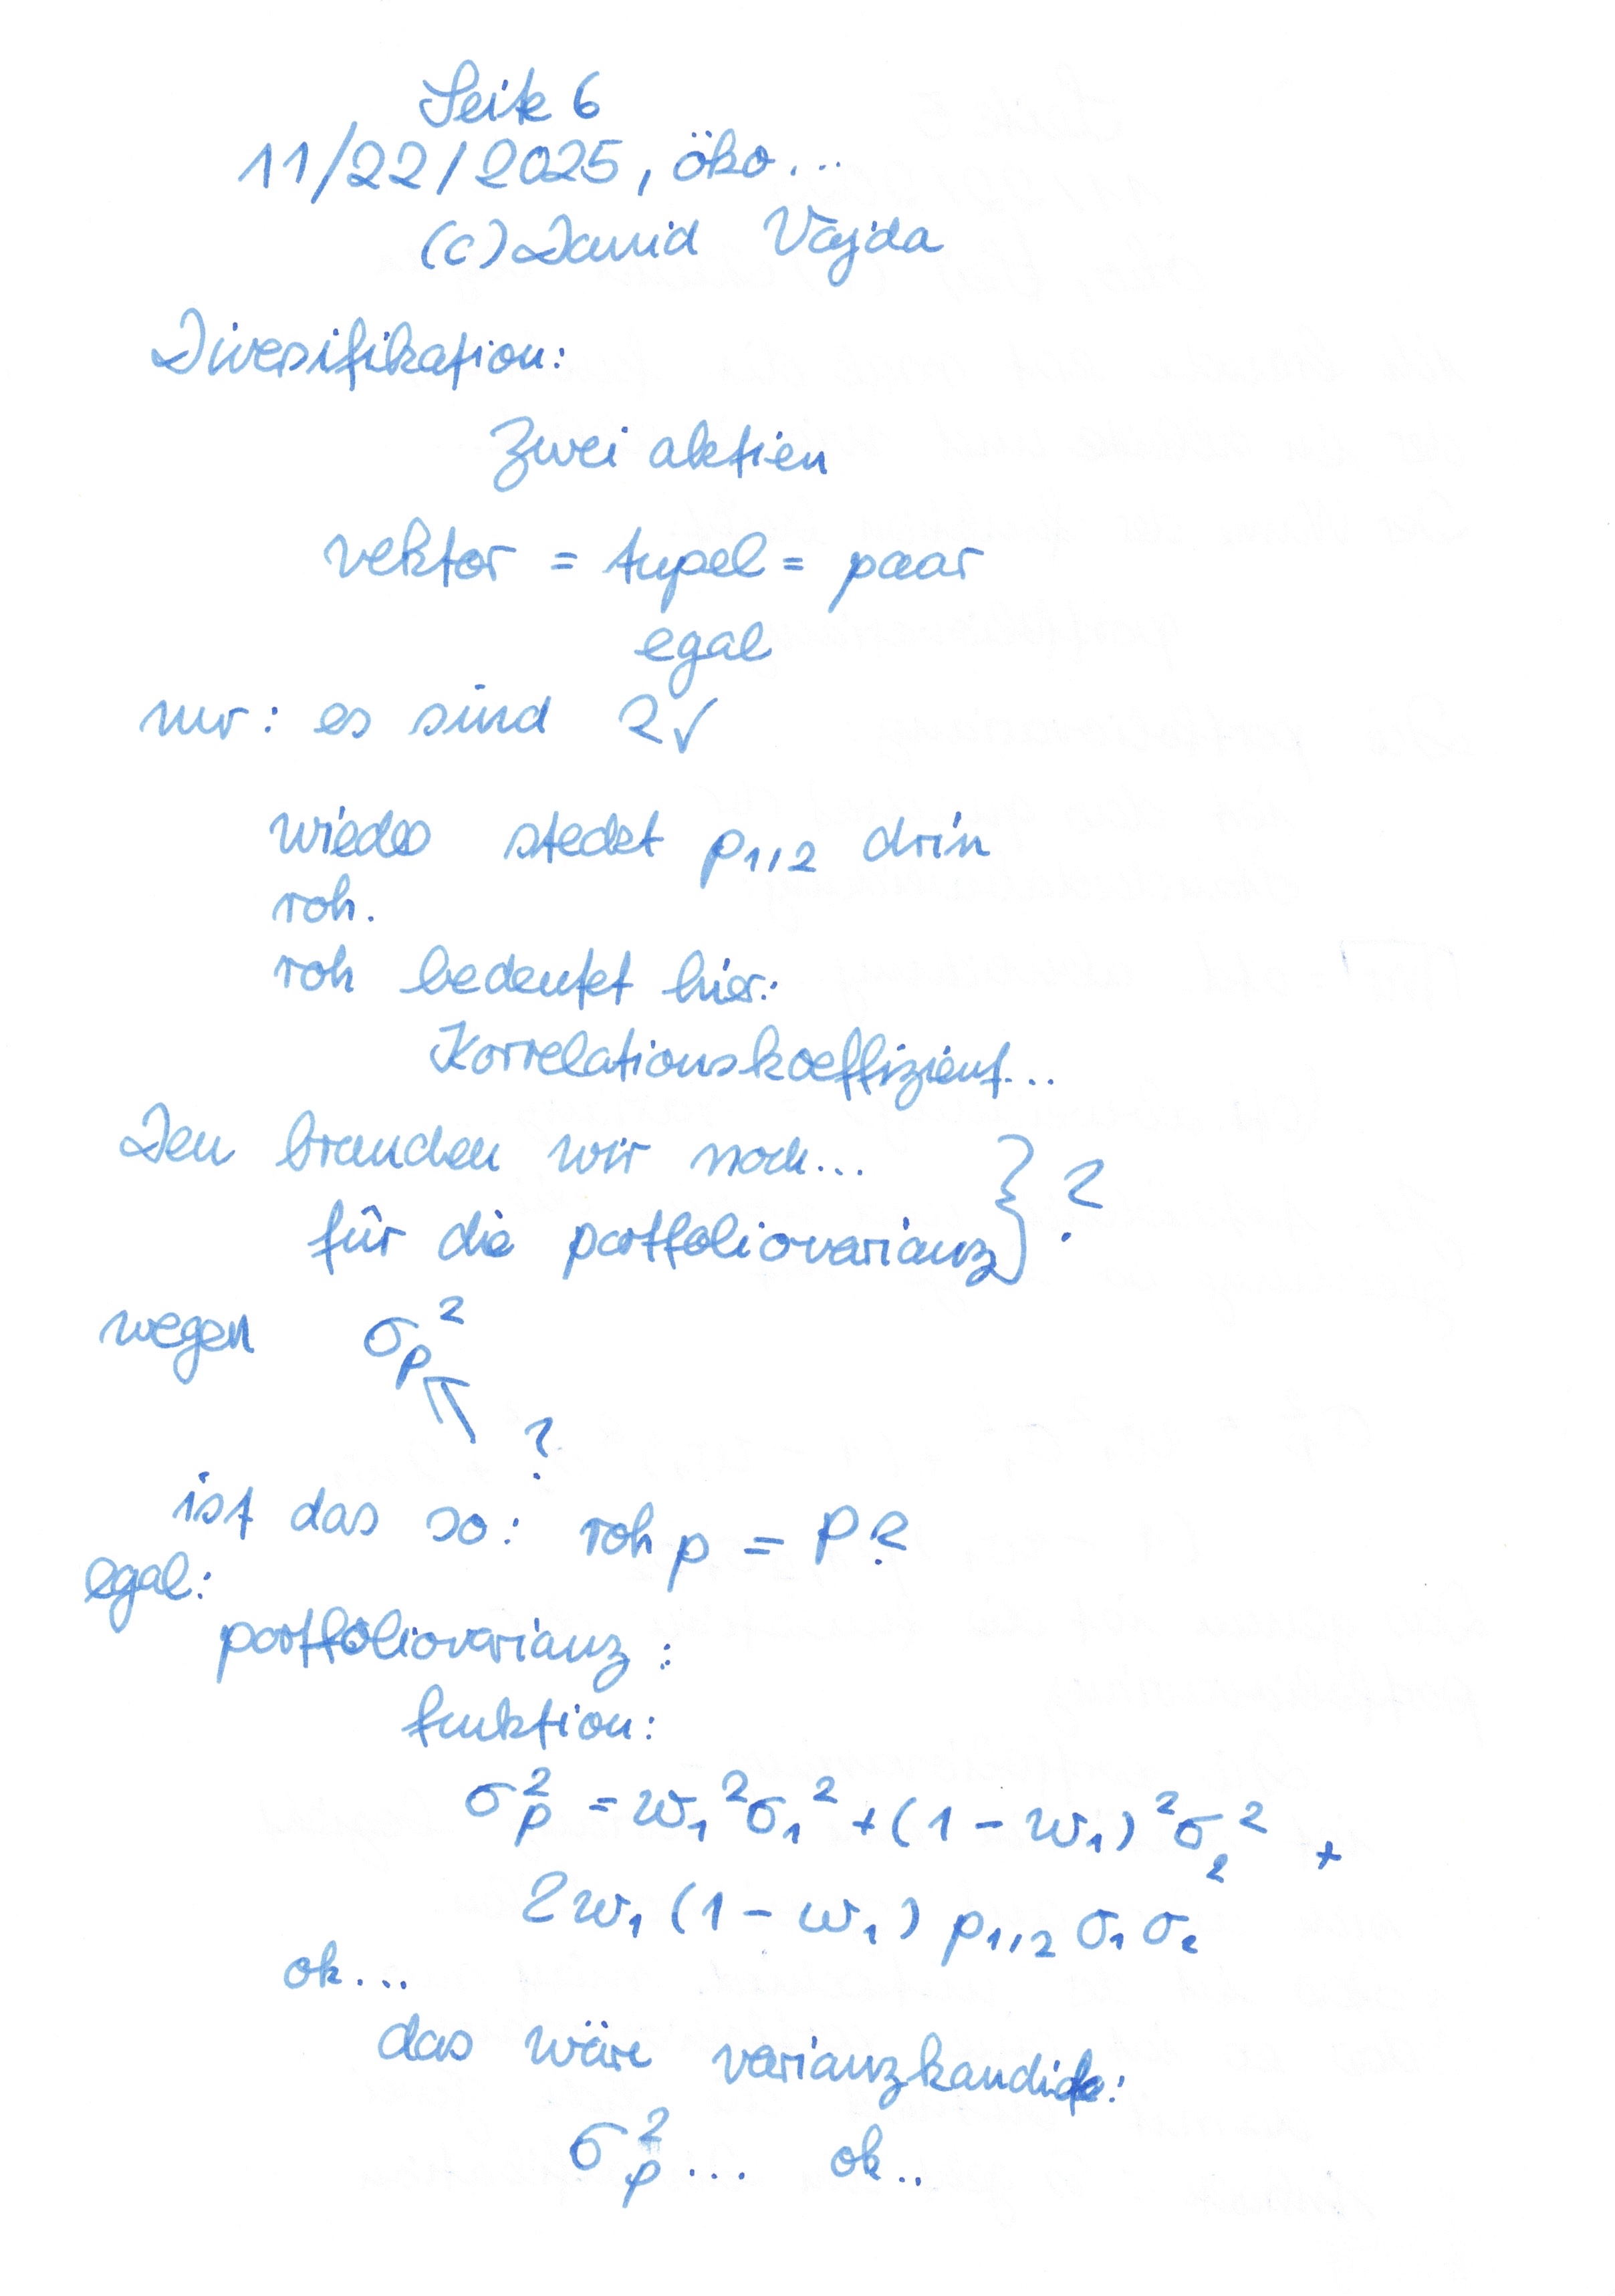 Seite 6
11/22/2025, öko...
(c) David Vajda
Diversifikation:
Zwei aktien
vektor = tupel = paar
egal
nur: es sind 2✓
wieder steckt ρ1,2 drin
roh.
roh bedeutet hier:
Korrelationskoeffizient...
Den brauchen wir noch... } ?
für die portfoliovarianz
wegen σp²
?
ist das so: roh ρ = P?
egal:
portfoliovarianz:
funktion:
σp² = w1²σ1² + (1 - w1)²σ2² +
2w1(1 - w1) ρ1,2 σ1 σ2
ok...
das wäre varianzkandidat:
σp² ... ok..